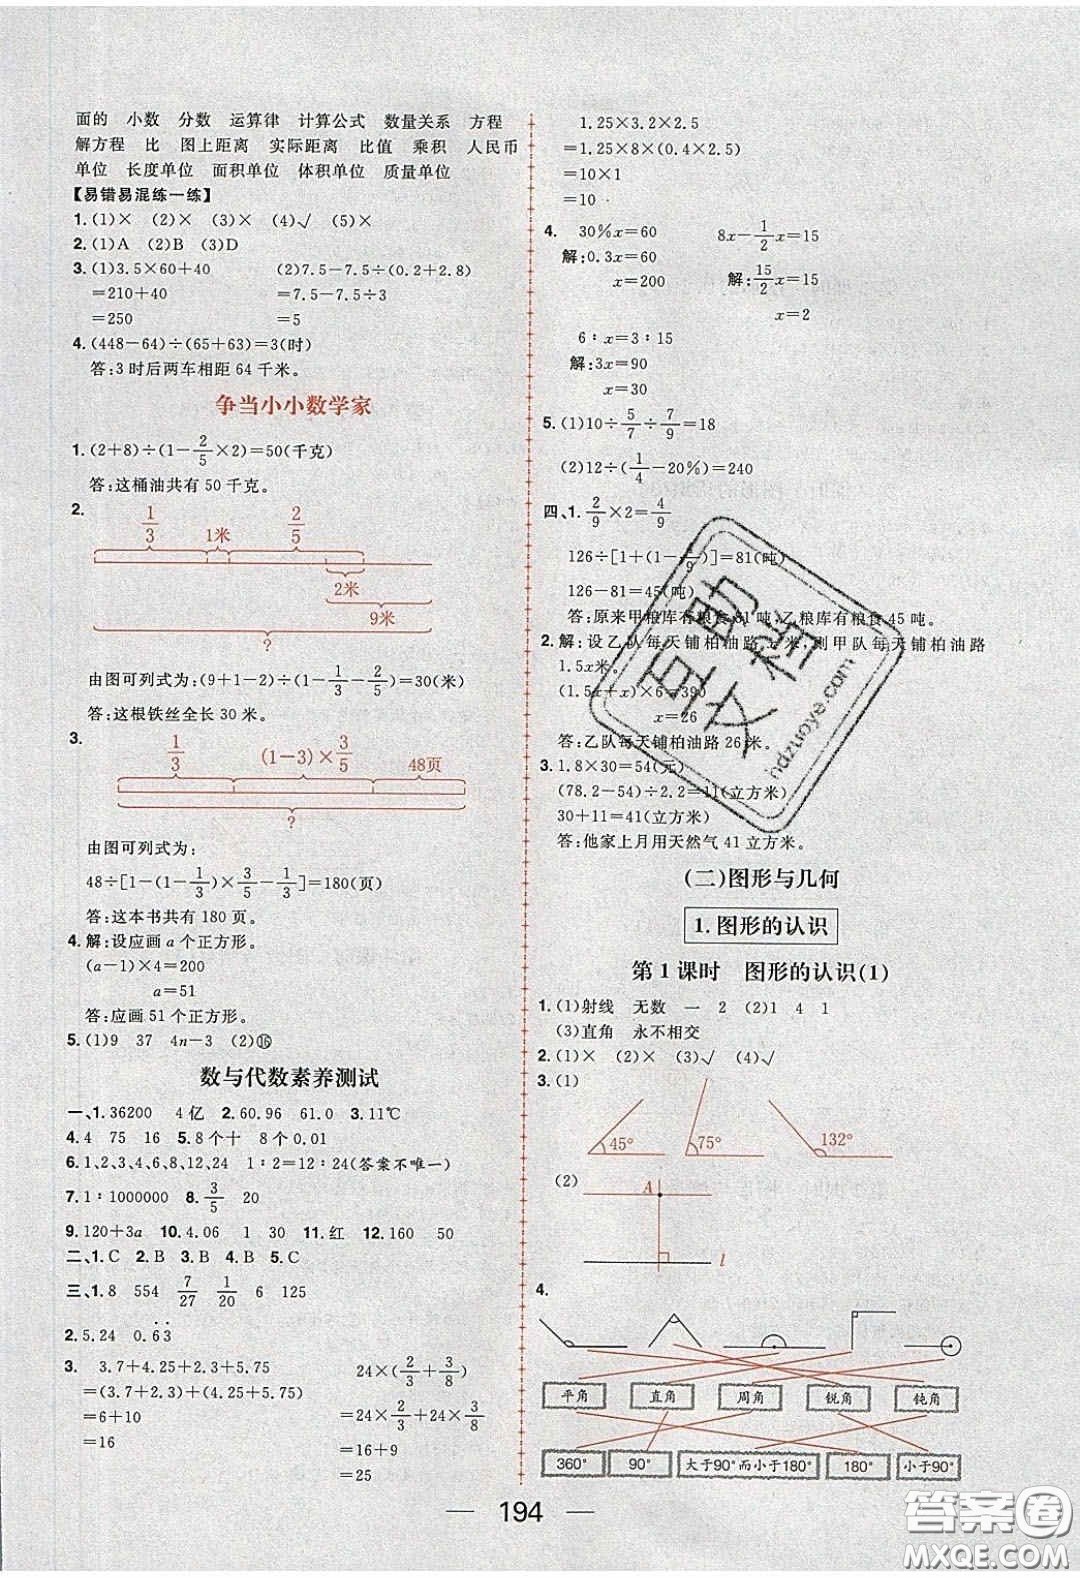 面的 小数 分数 运算律 计算公式 数量关系 方程
解方程 比 图上距离 实际距离 比值 乘积 人民币
单位 长度单位 面积单位 体积单位 质量单位
【易错易混练一练】
1.(1)× (2)× (3)× (4)√ (5)×
2.(1)A (2)B (3)D
3.(1)3.5×60+40 (2)7.5-7.5÷(0.2+2.8)
=210+40 =7.5-7.5÷3
=250 =5
4.(448-64)÷(65+63)=3(时)
答:3时后两车相距64千米。
争当小小数学家
1.(2+8)÷(1-2/5×2)=50(千克)
答:这桶油共有50千克。
2.
1/3 1米 2/5
2米
9米
?
由图可列式为:(9+1-2)÷(1-1/3-2/5)=30(米)
答:这根铁丝全长30米。
3.
1/3 (1-3)×3/5 48页
?
由图可列式为:
48÷[1-(1-1/3)×3/5-1/3]=180(页)
答:这本书共有180页。
4.解:设应画a个正方形。
(a-1)×4=200
a=51
答:应画51个正方形。
5.(1)9 37 4n-3 (2)⑯
数与代数素养测试
一、1.36200 4亿 2.60.96 61.0 3.11℃
4.4 75 16 5.8个十 8个0.01
6.1、2、3、4、6、8、12、24 1:2=12:24(答案不唯一)
7.1:1000000 8.3/5 20
9.120+3a 10.4.06 1 30 11.红 12.160 50
二、1.C 2.B 3.B 4.B 5.C
三、1.8 554 7/27 1/20 6 125
2.5.24 0.6̇3̇
3. 3.7+4.25+2.3+5.75 24×(2/3+3/8)
=(3.7+2.3)+(4.25+5.75) =24×2/3+24×3/8
=6+10 =16+9
=16 =25
1.25×3.2×2.5
=1.25×8×(0.4×2.5)
=10×1
=10
4. 30%x=60 8x-1/2x=15
解:0.3x=60 解:15/2x=15
x=200 x=2
6:x=3:15
解:3x=90
x=30
5.(1)10÷5/7÷7/9=18
(2)12÷(1/4-20%)=240
四、1.2/9×2=4/9
126÷[1+(1-4/9)]=81(吨)
126-81=45(吨)
答:原来甲粮库有粮食81吨,乙粮库有粮食45吨。
2.解:设乙队每天铺柏油路x米,则甲队每天铺柏油路
1.5x米。
(1.5x+x)×6=390
x=26
答:乙队每天铺柏油路26米。
3.1.8×30=54(元)
(78.2-54)÷2.2=11(立方米)
30+11=41(立方米)
答:他家上月用天然气41立方米。
(二)图形与几何
1.图形的认识
第1课时 图形的认识(1)
1.(1)射线 无数 一 2 (2)1 4 1
(3)直角 永不相交
2.(1)× (2)× (3)√ (4)√
3.(1)
45° 75° 132°
(2) A
l
4.
平角 直角 周角 锐角 钝角
360° 90° 大于90°而小于180° 180° 小于90°
194
答案圈
MXQE.COM
助
档
文
ndzuoye.com